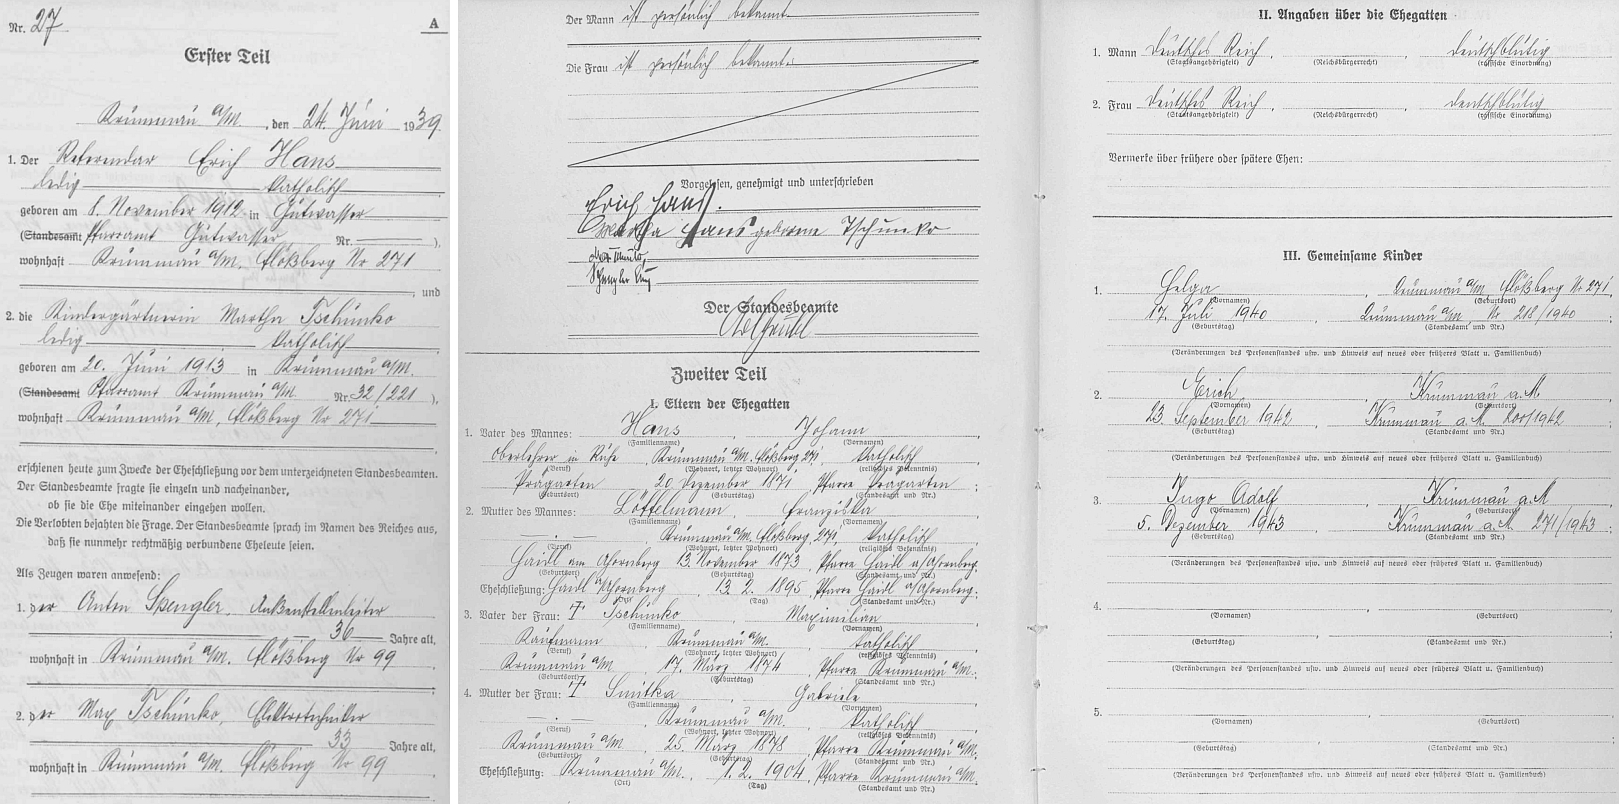 Nr. 27
A
Erster Teil
Krummau a/M. , den 24. Juni 1939.
1. Der Referendar Erich Hans
ledig katholisch
geboren am 8. November 1912 in Gutwasser
(Standesamt Pfarramt Gutwasser Nr. ),
wohnhaft Krummau a/M. Flößberg Nr 271
, und
2. die Kindergärtnerin Martha Tschunko
ledig katholisch
geboren am 20. Juni 1913 in Krummau a/M.
(Standesamt Pfarramt Krummau a/M. Nr. 32/221 ),
wohnhaft Krummau a/M, Flößberg Nr 271
erschienen heute zum Zwecke der Eheschließung vor dem unterzeichneten Standesbeamten.
Der Standesbeamte fragte sie einzeln und nacheinander,
ob sie die Ehe miteinander eingehen wollen.
Die Verlobten bejahten die Frage. Der Standesbeamte sprach im Namen des Reiches aus,
daß sie nunmehr rechtmäßig verbundene Eheleute seien.
Als Zeugen waren anwesend:
1. der Anton Spengler. Außenstellenleiter
36 Jahre alt,
wohnhaft in Krummau a/M. Flößberg Nr 99
2. der Max Tschunko, Elektrotechniker
33 Jahre alt,
wohnhaft in Krummau a/M. Flößberg Nr 99
Der Mann ist persönlich bekannt.
Die Frau ist persönlich bekannt.
Vorgelesen, genehmigt und unterschrieben
Erich Hans.
Martha Hans geborene Tschunko
Der Standesbeamte
Zweiter Teil
I. Eltern der Ehegatten
1. Vater des Mannes: Hans , Johann
(Familienname) (Vornamen)
Oberlehrer in Ruhe , Krummau a/M. Flößberg 271, katholisch
(Beruf) (Wohnort, letzter Wohnort) (religiöses Bekenntnis)
Prägarten , 20. Dezember 1871 , Pfarre Prägarten ;
(Geburtsort) (Geburtstag) (Standesamt und Nr.)
2. Mutter des Mannes: Löffelmann , Franziska
(Familienname) (Vornamen)
—.— , Krummau a/M. Flößberg 271, katholisch
(Beruf) (Wohnort, letzter Wohnort) (religiöses Bekenntnis)
Haidl am Ahornberg 13. November 1873 , Pfarre Haidl a/Ahornberg.
(Geburtsort) (Geburtstag) (Standesamt und Nr.)
Eheschließung: Haidl a/Ahornberg , 13. 2. 1895 , Pfarre Haidl a/Ahornberg.
(Ort) (Tag) (Standesamt und Nr.)
3. Vater der Frau: † Tschunko , Maximilian
(Familienname) (Vornamen)
Kaufmann , Krummau a/M. , katholisch
(Beruf) (Wohnort, letzter Wohnort) (religiöses Bekenntnis)
Krummau a/M. , 17. März 1874 , Pfarre Krummau a/M. ;
(Geburtsort) (Geburtstag) (Standesamt und Nr.)
4. Mutter der Frau: † Smitka , Gabriele
(Familienname) (Vornamen)
—.— , Krummau a/M. , katholisch
(Beruf) (Wohnort, letzter Wohnort) (religiöses Bekenntnis)
Krummau a/M. , 25. März 1878 , Pfarre Krummau a/M.
(Geburtsort) (Geburtstag) (Standesamt und Nr.)
Eheschließung: Krummau a/M. , 1. 2. 1904 , Pfarre Krummau a/M.
(Ort) (Tag) (Standesamt und Nr.)
II. Angaben über die Ehegatten
1. Mann Deutsches Reich , , deutschblütig
(Staatsangehörigkeit) (Reichsbürgerrecht) (rassische Einordnung)
2. Frau Deutsches Reich , , deutschblütig
(Staatsangehörigkeit) (Reichsbürgerrecht) (rassische Einordnung)
Vermerke über frühere oder spätere Ehen:
III. Gemeinsame Kinder
1. Helga , Krummau a/M. Flößberg Nr 271,
(Vornamen) (Geburtsort)
17. Juli 1940 , Krummau a/M. Nr 218/1940 ;
(Geburtstag) (Standesamt und Nr.)
(Veränderungen des Personenstandes usw. und Hinweis auf neues oder früheres Blatt u. Familienbuch)
2. Erich , Krummau a. M
(Vornamen) (Geburtsort)
23. September 1942 , Krummau a. M. 200/1942 ;
(Geburtstag) (Standesamt und Nr.)
(Veränderungen des Personenstandes usw. und Hinweis auf neues oder früheres Blatt u. Familienbuch)
3. Ingo Adolf , Krummau a. M
(Vornamen) (Geburtsort)
5. Dezember 1943 , Krummau a. M. 271/1943 ;
(Geburtstag) (Standesamt und Nr.)
(Veränderungen des Personenstandes usw. und Hinweis auf neues oder früheres Blatt u. Familienbuch)
4. , ,
(Vornamen) (Geburtsort)
, ;
(Geburtstag) (Standesamt und Nr.)
(Veränderungen des Personenstandes usw. und Hinweis auf neues oder früheres Blatt u. Familienbuch)
5. , ,
(Vornamen) (Geburtsort)
, ;
(Geburtstag) (Standesamt und Nr.)
(Veränderungen des Personenstandes usw. und Hinweis auf neues oder früheres Blatt u. Familienbuch)